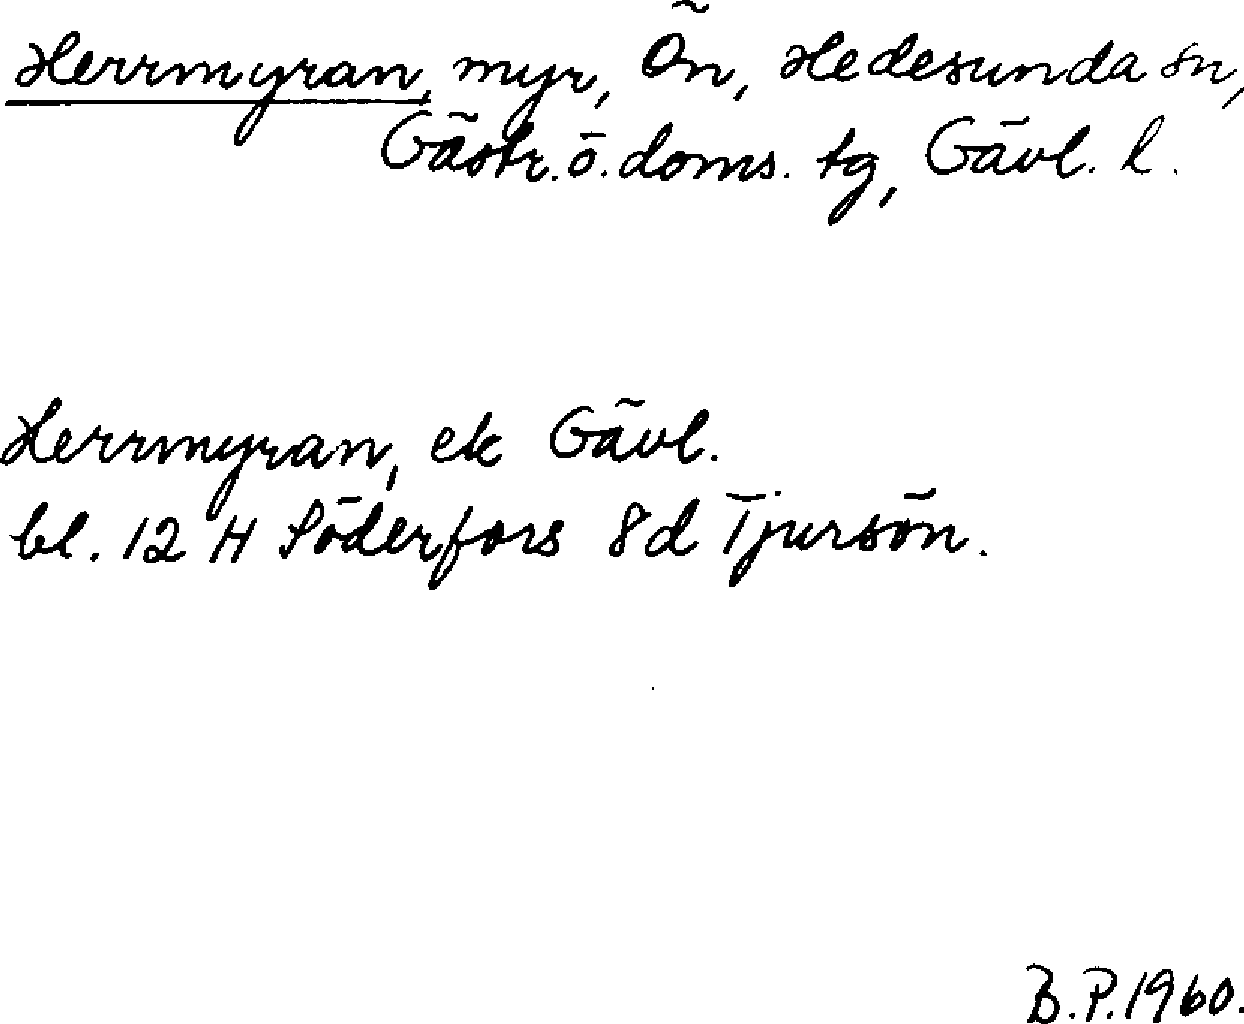 Herrmyran, myr, Ön, Hedesunda sn,
Gästr. ö. doms. tg, Gävl. l.
Herrmyran, ek Gävl.
bl. 12 H Söderfors 8d Tjursön.
B.P. 1960.